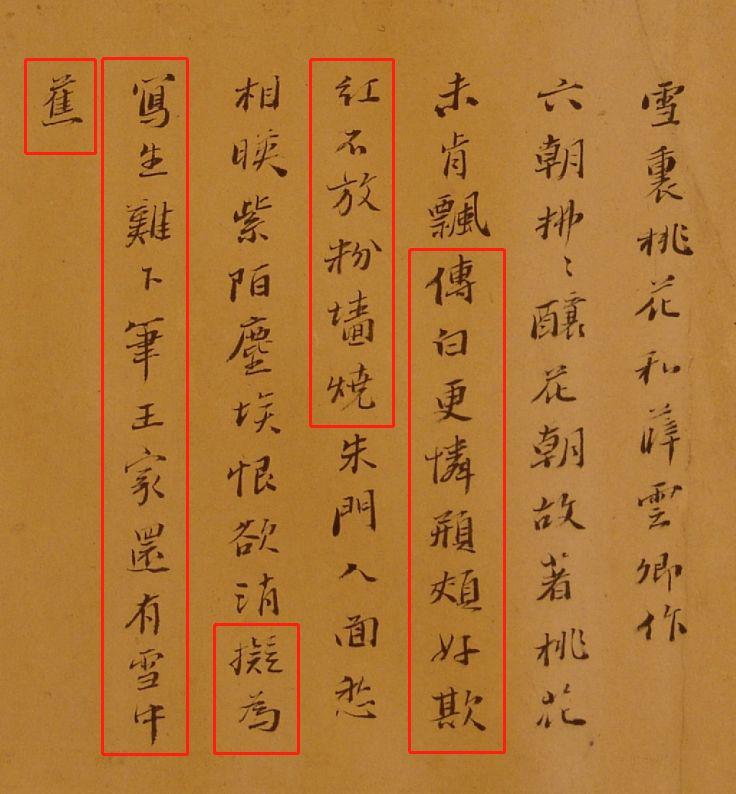 雪裏桃花和薛雲卿作
六朝拂〻釀花朝故著桃花
未肯飄傅白更憐頩頰好欺
紅不放粉墻燒朱門人面愁
相暎紫陌塵埃恨欲消擬為
寫生難下筆王家還有雪中
蕉